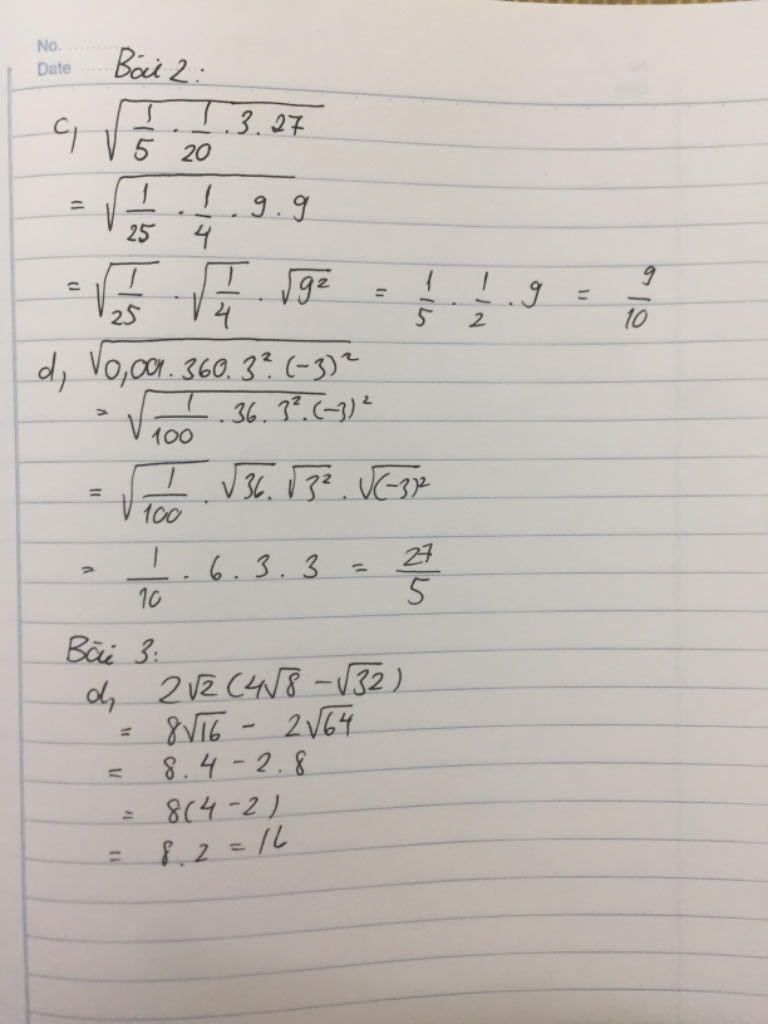 No.
Date
Bài 2:
c, √(1/5 . 1/20 . 3 . 27)
= √(1/25 . 1/4 . 9 . 9)
= √(1/25) . √(1/4) . √9² = 1/5 . 1/2 . 9 = 9/10
d, √(0,001 . 360 . 3² . (-3)²)
= √(1/100 . 36 . 3² . (-3)²)
= √(1/100) . √36 . √3² . √(-3)²
= 1/10 . 6 . 3 . 3 = 27/5
Bài 3:
d, 2√2 (4√8 - √32)
= 8√16 - 2√64
= 8 . 4 - 2 . 8
= 8(4 - 2)
= 8 . 2 = 16